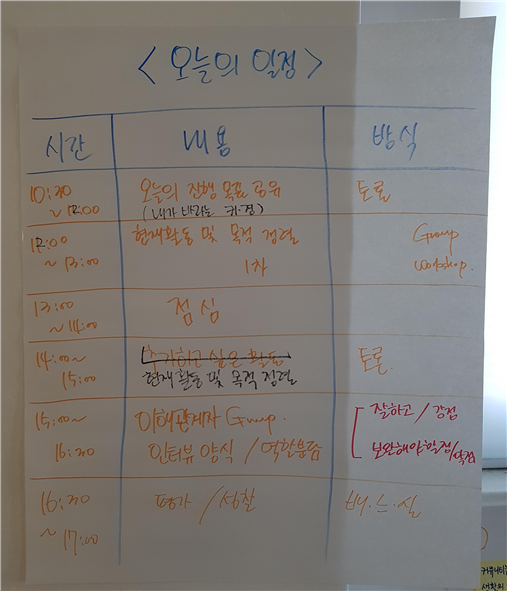 < 오늘의 일정 >
시간 내용 방식
10:30 오늘의 진행 목표 공유 토론
~ 12:00 (내가 바라는 카·컨)
12:00 현재활동 및 목적 정렬 Group
~ 13:00 1차 workshop.
13:00 점심
~ 14:00
14:00~ 추가하고 싶은 활동 토론.
15:00 현재 활동 및 목적 정렬
15:00~ 이해관계자 Group. 잘하고 / 강점
16:30 인터뷰 양식 / 역할분담 보완해야할점/약점
16:30 평가 / 성찰 배·느·실
~ 17:00
커뮤니티
생활의